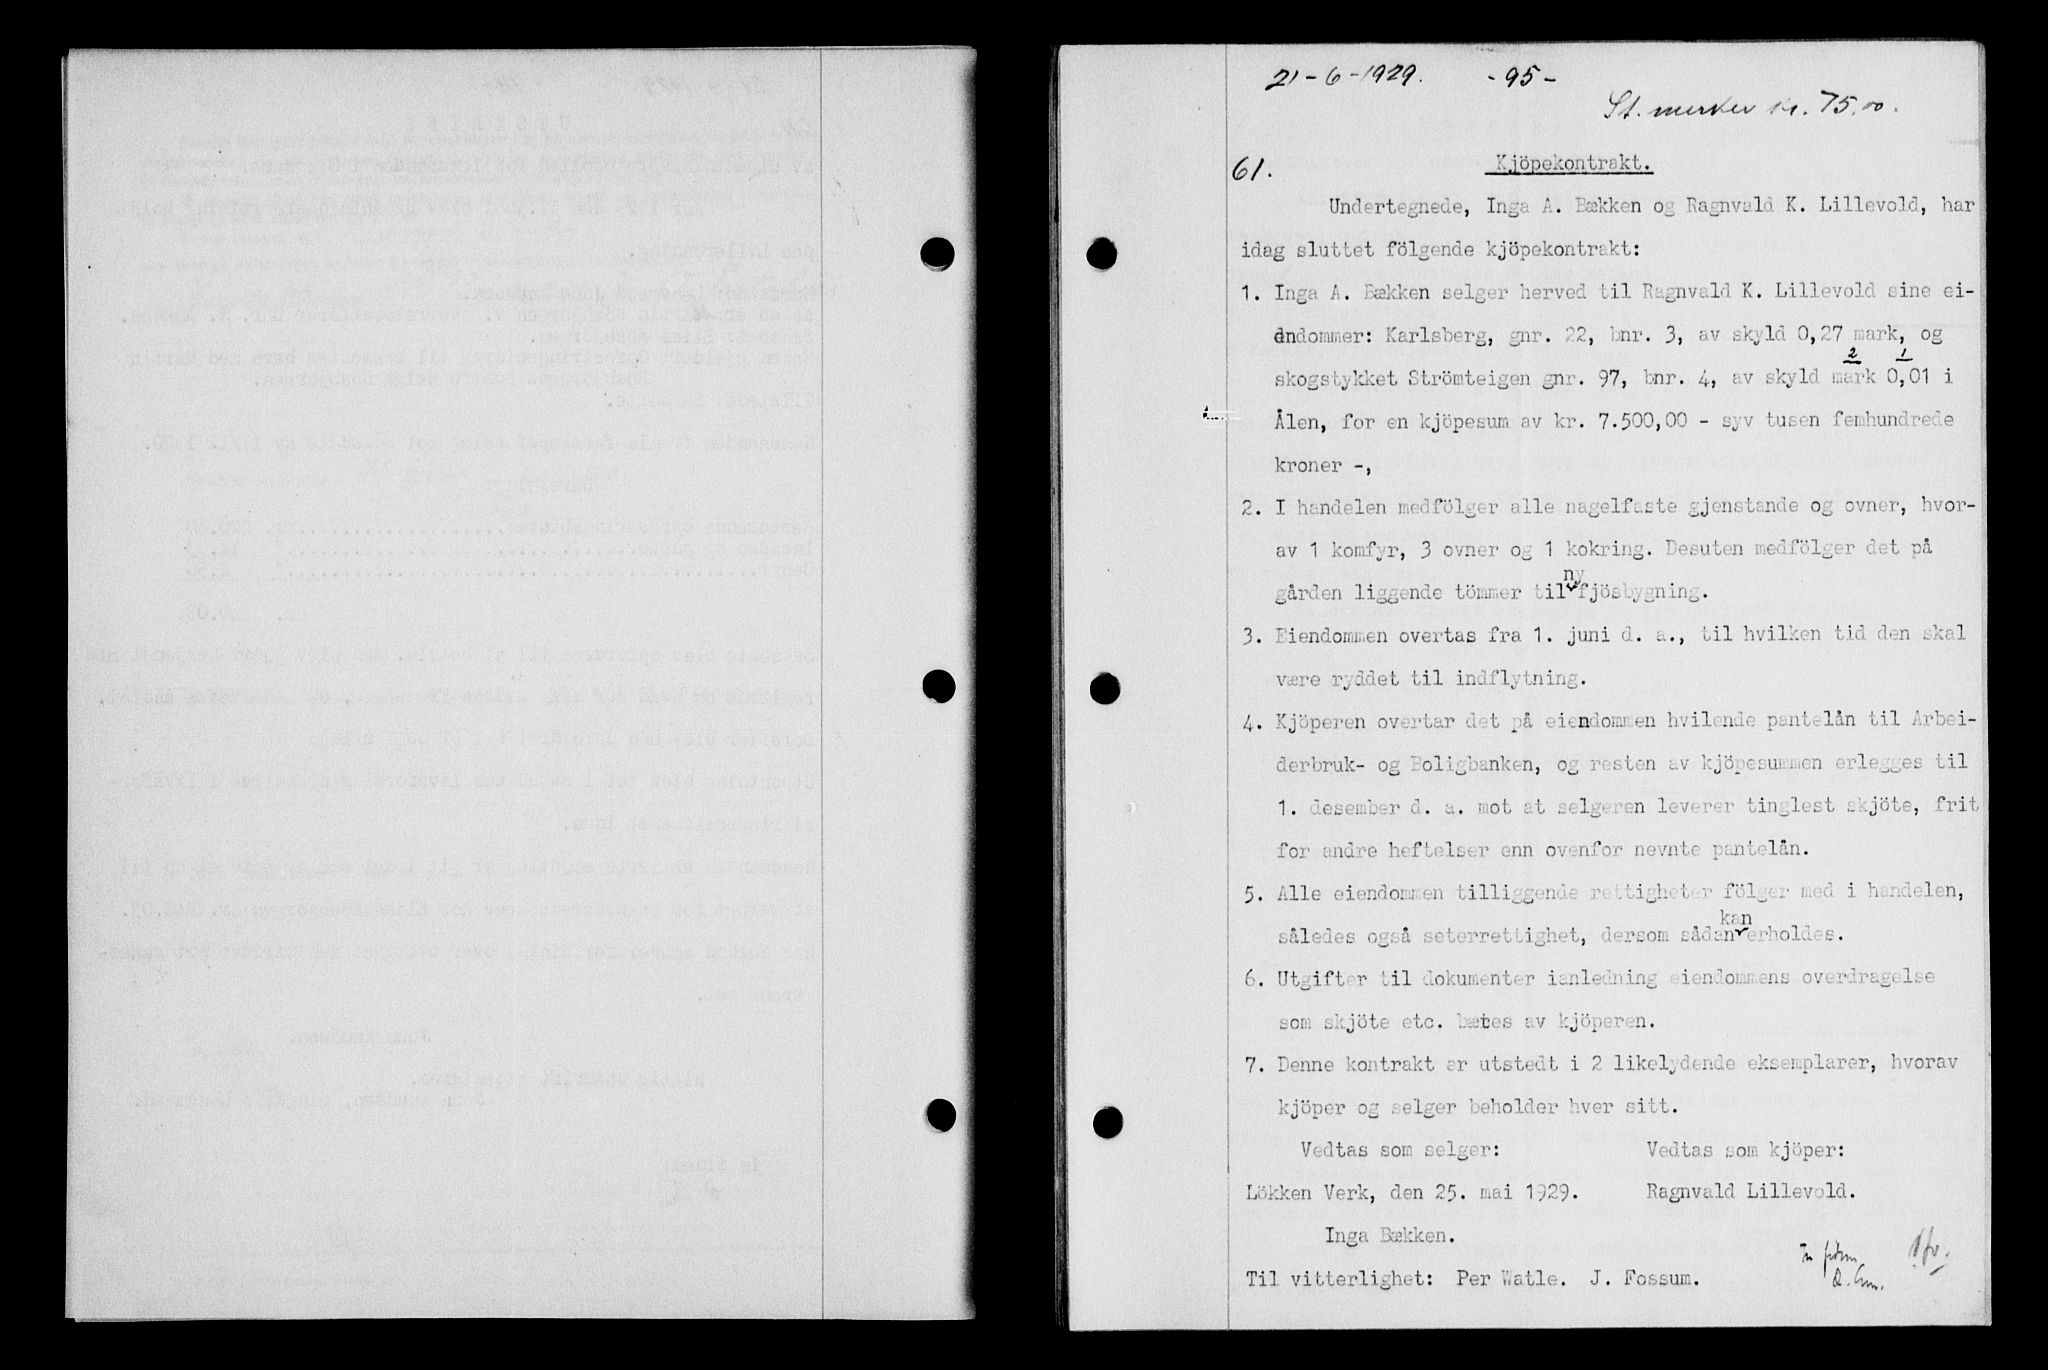 21-6-1929. -95-
St. merker kr. 75.00.
61. Kjöpekontrakt.
Undertegnede, Inga A. Bækken og Ragnvald K. Lillevold, har
idag sluttet fölgende kjöpekontrakt:
1. Inga A. Bækken selger herved til Ragnvald K. Lillevold sine ei-
endommer: Karlsberg, gnr. 22, bnr. 3, av skyld 0,27 mark, og
2 1
skogstykket Strömteigen gnr. 97, bnr. 4, av skyld mark 0,01 i
Ålen, for en kjöpesum av kr. 7.500,00 - syv tusen femhundrede
kroner -,
2. I handelen medfölger alle nagelfaste gjenstande og ovner, hvor-
av 1 komfyr, 3 ovner og 1 kokring. Desuten medfölger det på
ny
gården liggende tömmer til fjösbygning.
3. Eiendommen overtas fra 1. juni d. a., til hvilken tid den skal
være ryddet til indflytning.
4. Kjöperen overtar det på eiendommen hvilende pantelån til Arbei-
derbruk- og Boligbanken, og resten av kjöpesummen erlegges til
1. desember d. a. mot at selgeren leverer tinglest skjöte, frit
for andre heftelser enn ovenfor nevnte pantelån.
5. Alle eiendommen tilliggende rettigheter fölger med i handelen,
kan
således også seterrettighet, dersom sådan erholdes.
6. Utgifter til dokumenter ianledning eiendommens overdragelse
som skjöte etc. bæres av kjöperen.
7. Denne kontrakt er utstedt i 2 likelydende eksemplarer, hvorav
kjöper og selger beholder hver sitt.
Vedtas som selger: Vedtas som kjöper:
Lökken Verk, den 25. mai 1929. Ragnvald Lillevold.
Inga Bækken.
Til vitterlighet: Per Watle. J. Fossum.